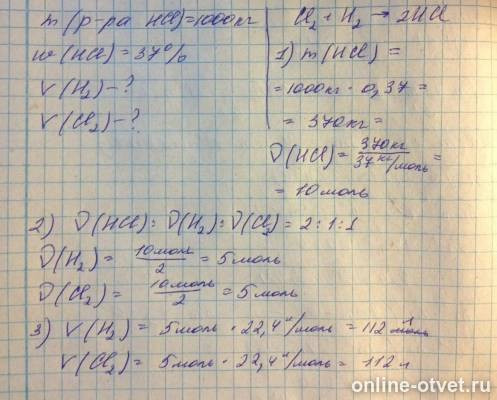 m(р-ра HCl)=1000кг
w(HCl)=37%
V(H₂)-?
V(Cl₂)-?
Cl₂+H₂→2HCl
1) m(HCl)=
=1000кг·0,37=
=370кг=
ν(HCl)=370кг/37кг/моль=
=10моль
2) ν(HCl):ν(H₂):ν(Cl₂)=2:1:1
ν(H₂)=10моль/2=5моль
ν(Cl₂)=10моль/2=5моль
3) V(H₂)=5моль·22,4л/моль=112л
V(Cl₂)=5моль·22,4л/моль=112л
online-otvet.ru